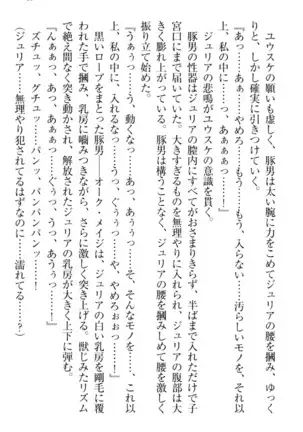 ユウスケの願いも虚しく、豚男は太い腕に力をこめてジュリアの腰を掴み、ゆっく
りと、しかし確実に引きつけていく。
『うぁっ……あっ、やめろ……もうっ……もう、入らなっ……汚らしいモノを、これ以
上、私の中に……っ、あぁぁっ……！』
ジュリアの悲鳴がユウスケの意識を貫く。
豚男の性器はジュリアの膣内にすべてがおさまりきらず、半ばまで入れただけで子
宮口にまで届いていた。大きすぎるものを無理やりに入れられ、ジュリアの腹部は大
きく膨れ上がっている。豚男は構うことなく、ジュリアの腰を掴みしめて腰を激しく
振り立て始めた。
『うぁぅっ……うっ、動くなっ……あっ、あぁぅっ……！　そんなモノを……、これ以
上、私の中に、入れるなっ……うっ、ぐぅぅっ……や、やめろぉぉっ……！』
黒いローブをまとった豚男――オーク・メイジは、ジュリアの白い乳房を剛毛に覆
われた手で掴み、乳房に噛みつきながら、さらに激しく突き上げる。獣じみたリズム
で絶え間なく突き動かされ、解放されたジュリアの乳房が大きく上下に弾む。
『んぁっ……あっ、あぁぁっ……ぐぅっ、うっ、あうぅっ……！』
ズチュッ、グチュッ……パンッ、パンパンパンッ……！
（ジュリア……無理やり犯されてるはずなのに……濡れてる……？）